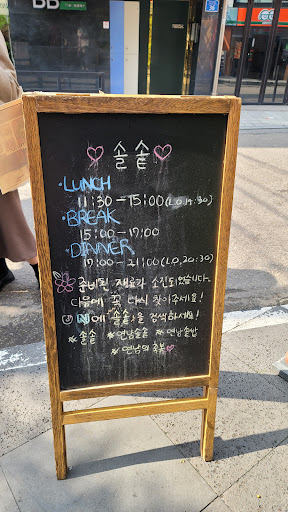 ♡솔솥♡
·LUNCH
11:30-15:00(L.O.14:30)
·BREAK
15:00-17:00
·DINNER
17:00-21:00(L.O.20:30)
준비된 재료가 소진되었습니다.
다음에 꼭 다시 찾아주세요!
에 "솔솥"을 검색하세요!
솔솥 연남솔솥 연남솥밥